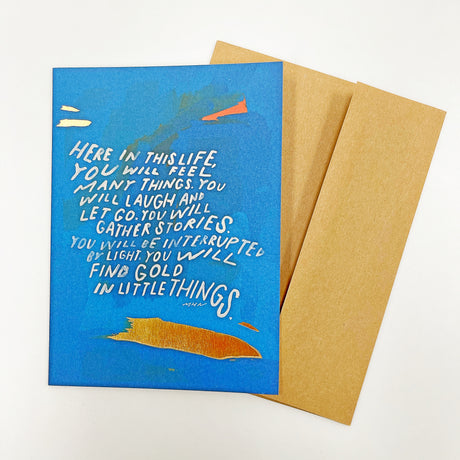 HERE IN THIS LIFE,
YOU WILL FEEL
MANY THINGS. YOU
WILL LAUGH AND
LET GO. YOU WILL
GATHER STORIES.
YOU WILL BE INTERRUPTED
BY LIGHT. YOU WILL
FIND GOLD
IN LITTLE THINGS.
MHN